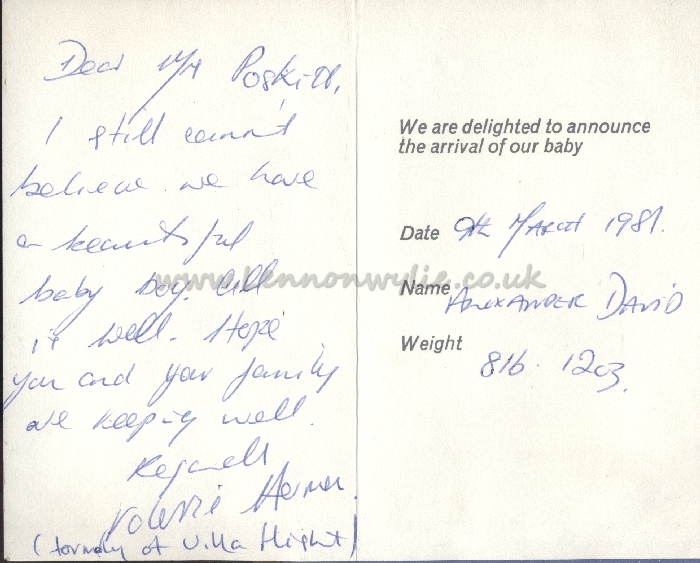 Dear Mr Poskitt,
I still cannot
believe we have
a beautiful
baby boy. All
is well. Hope
you and your family
are keeping well.
Regards
Valerie
(formerly of Villa Flight)
We are delighted to announce
the arrival of our baby
Date 9th March 1981.
Name ALEXANDER DAVID
Weight
8lb. 12oz.
www.lennonwylie.co.uk